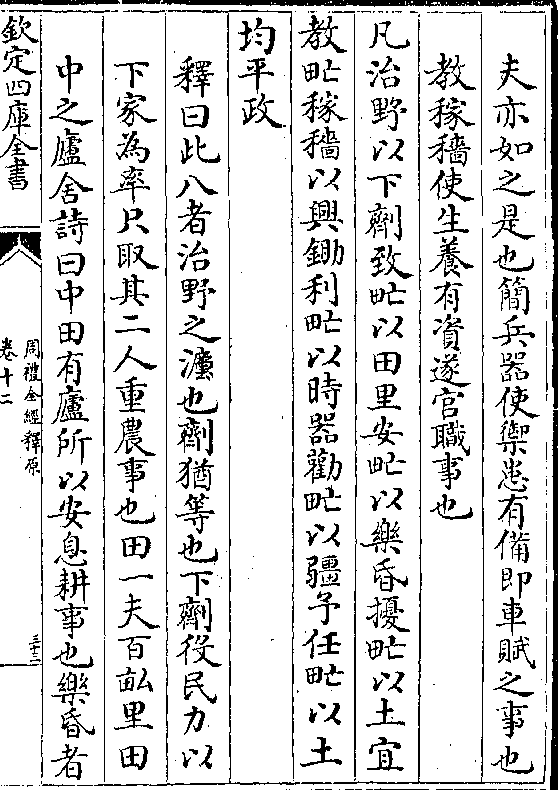 夫亦如之是也簡兵器使禦患有備即車賦之事也
教稼穡使生養有資遂官職事也
凡治野以下劑致甿以田里安甿以樂昏擾甿以土宜
教甿稼穡以興鋤利甿以時器勸甿以疆予任甿以土
均平政
釋曰此八者治野之灋也劑猶等也下劑役民力以
下家為率只取其二人重農事也田一夫百畝里田
中之廬舍詩曰中田有廬所以安息耕事也樂昏者
欽定四庫全書
周禮全經釋原
卷十二
三十二